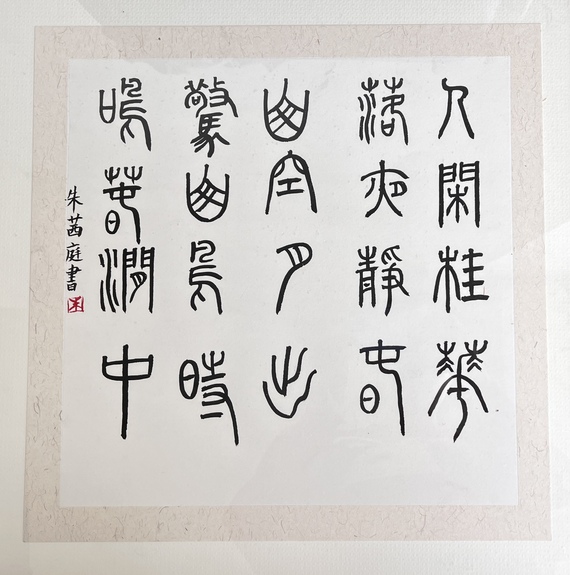 人閑桂華
落夜靜春
山空月出
驚山鳥時
鳴春澗中
朱茜庭書